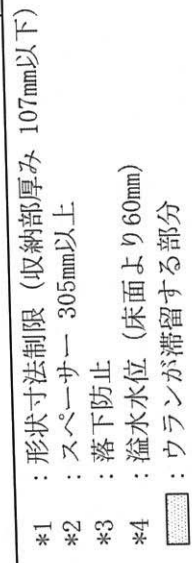 *1 ：形状寸法制限（収納部厚み 107mm以下）
*2 ：スペーサー 305mm以上
*3 ：落下防止
*4 ：溢水水位（床面より60mm）
：ウランが滞留する部分